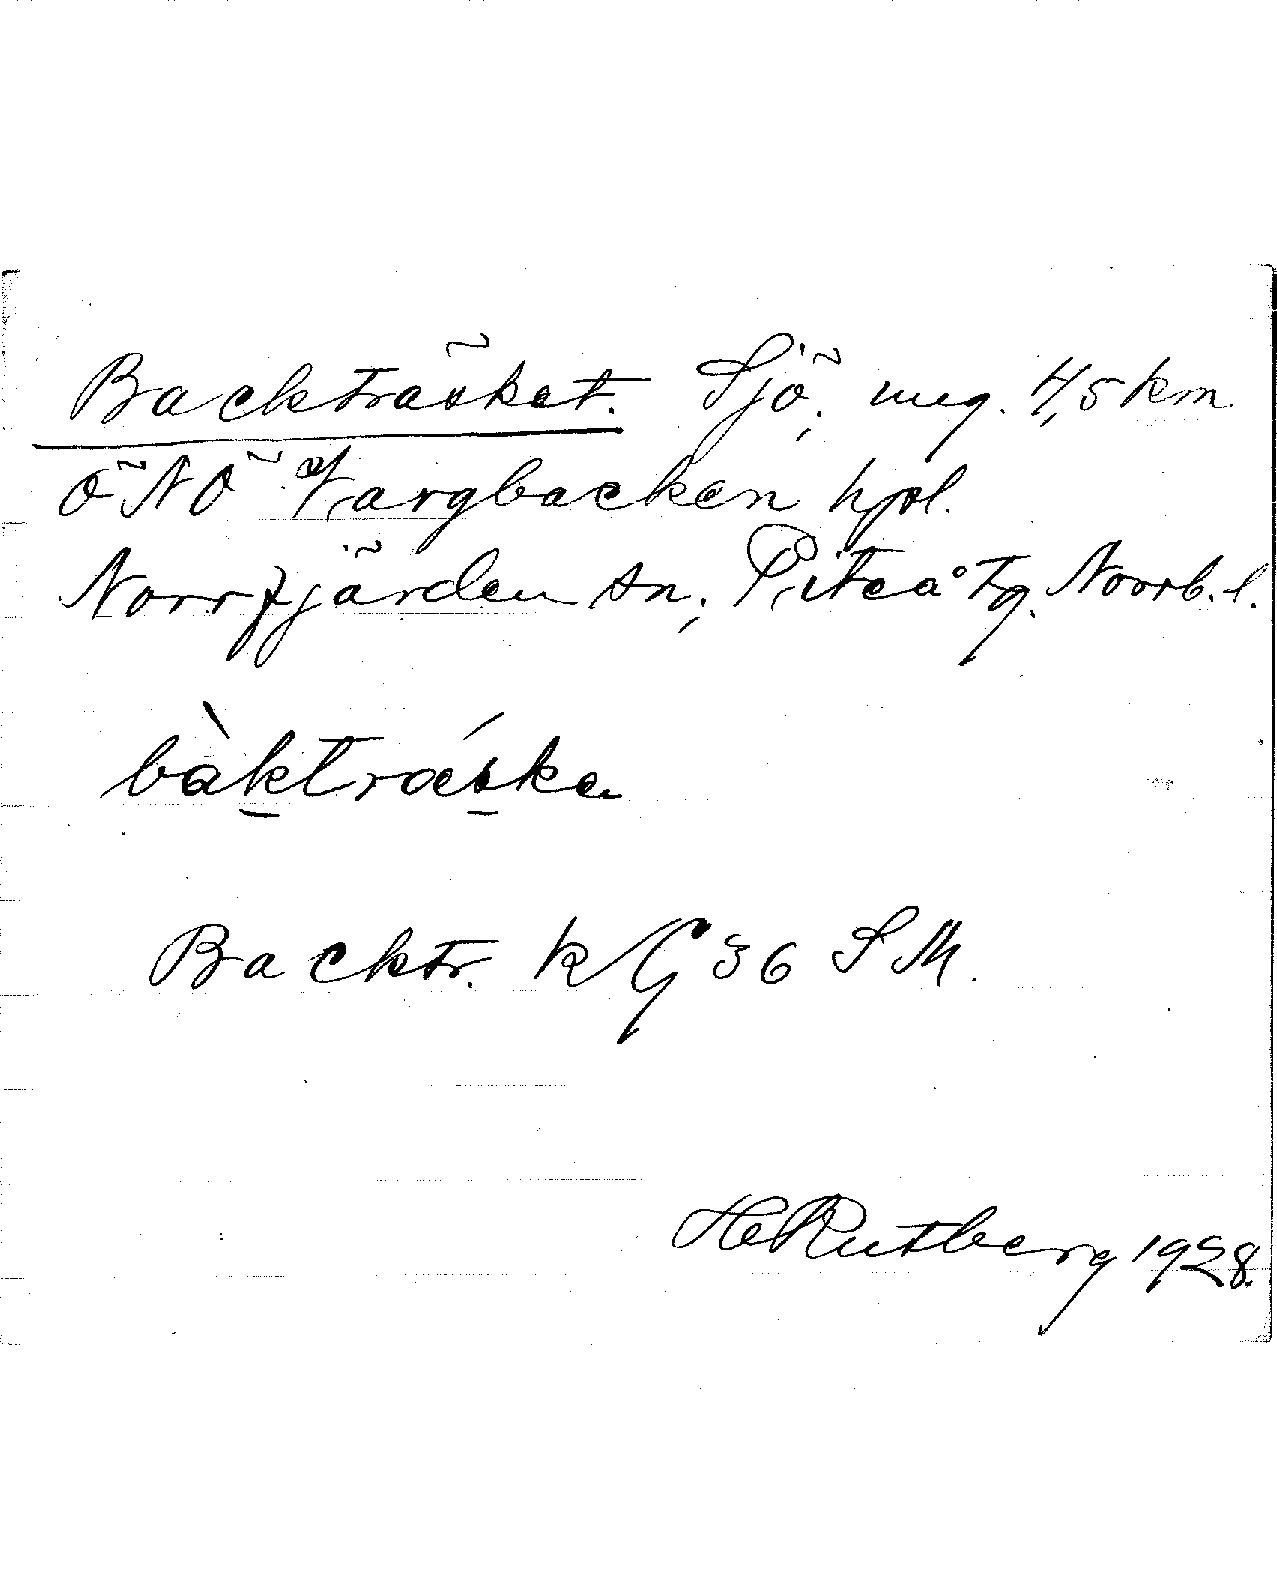 Backträsket. Sjö, ung. 4,5 km
ÖNÖ Vargbacken hpl.
Norrfjärden sn, Piteå tg. Norrb. l.
bàktrǽska
Backtr. k G 36 S M.
H Rutberg 1928.